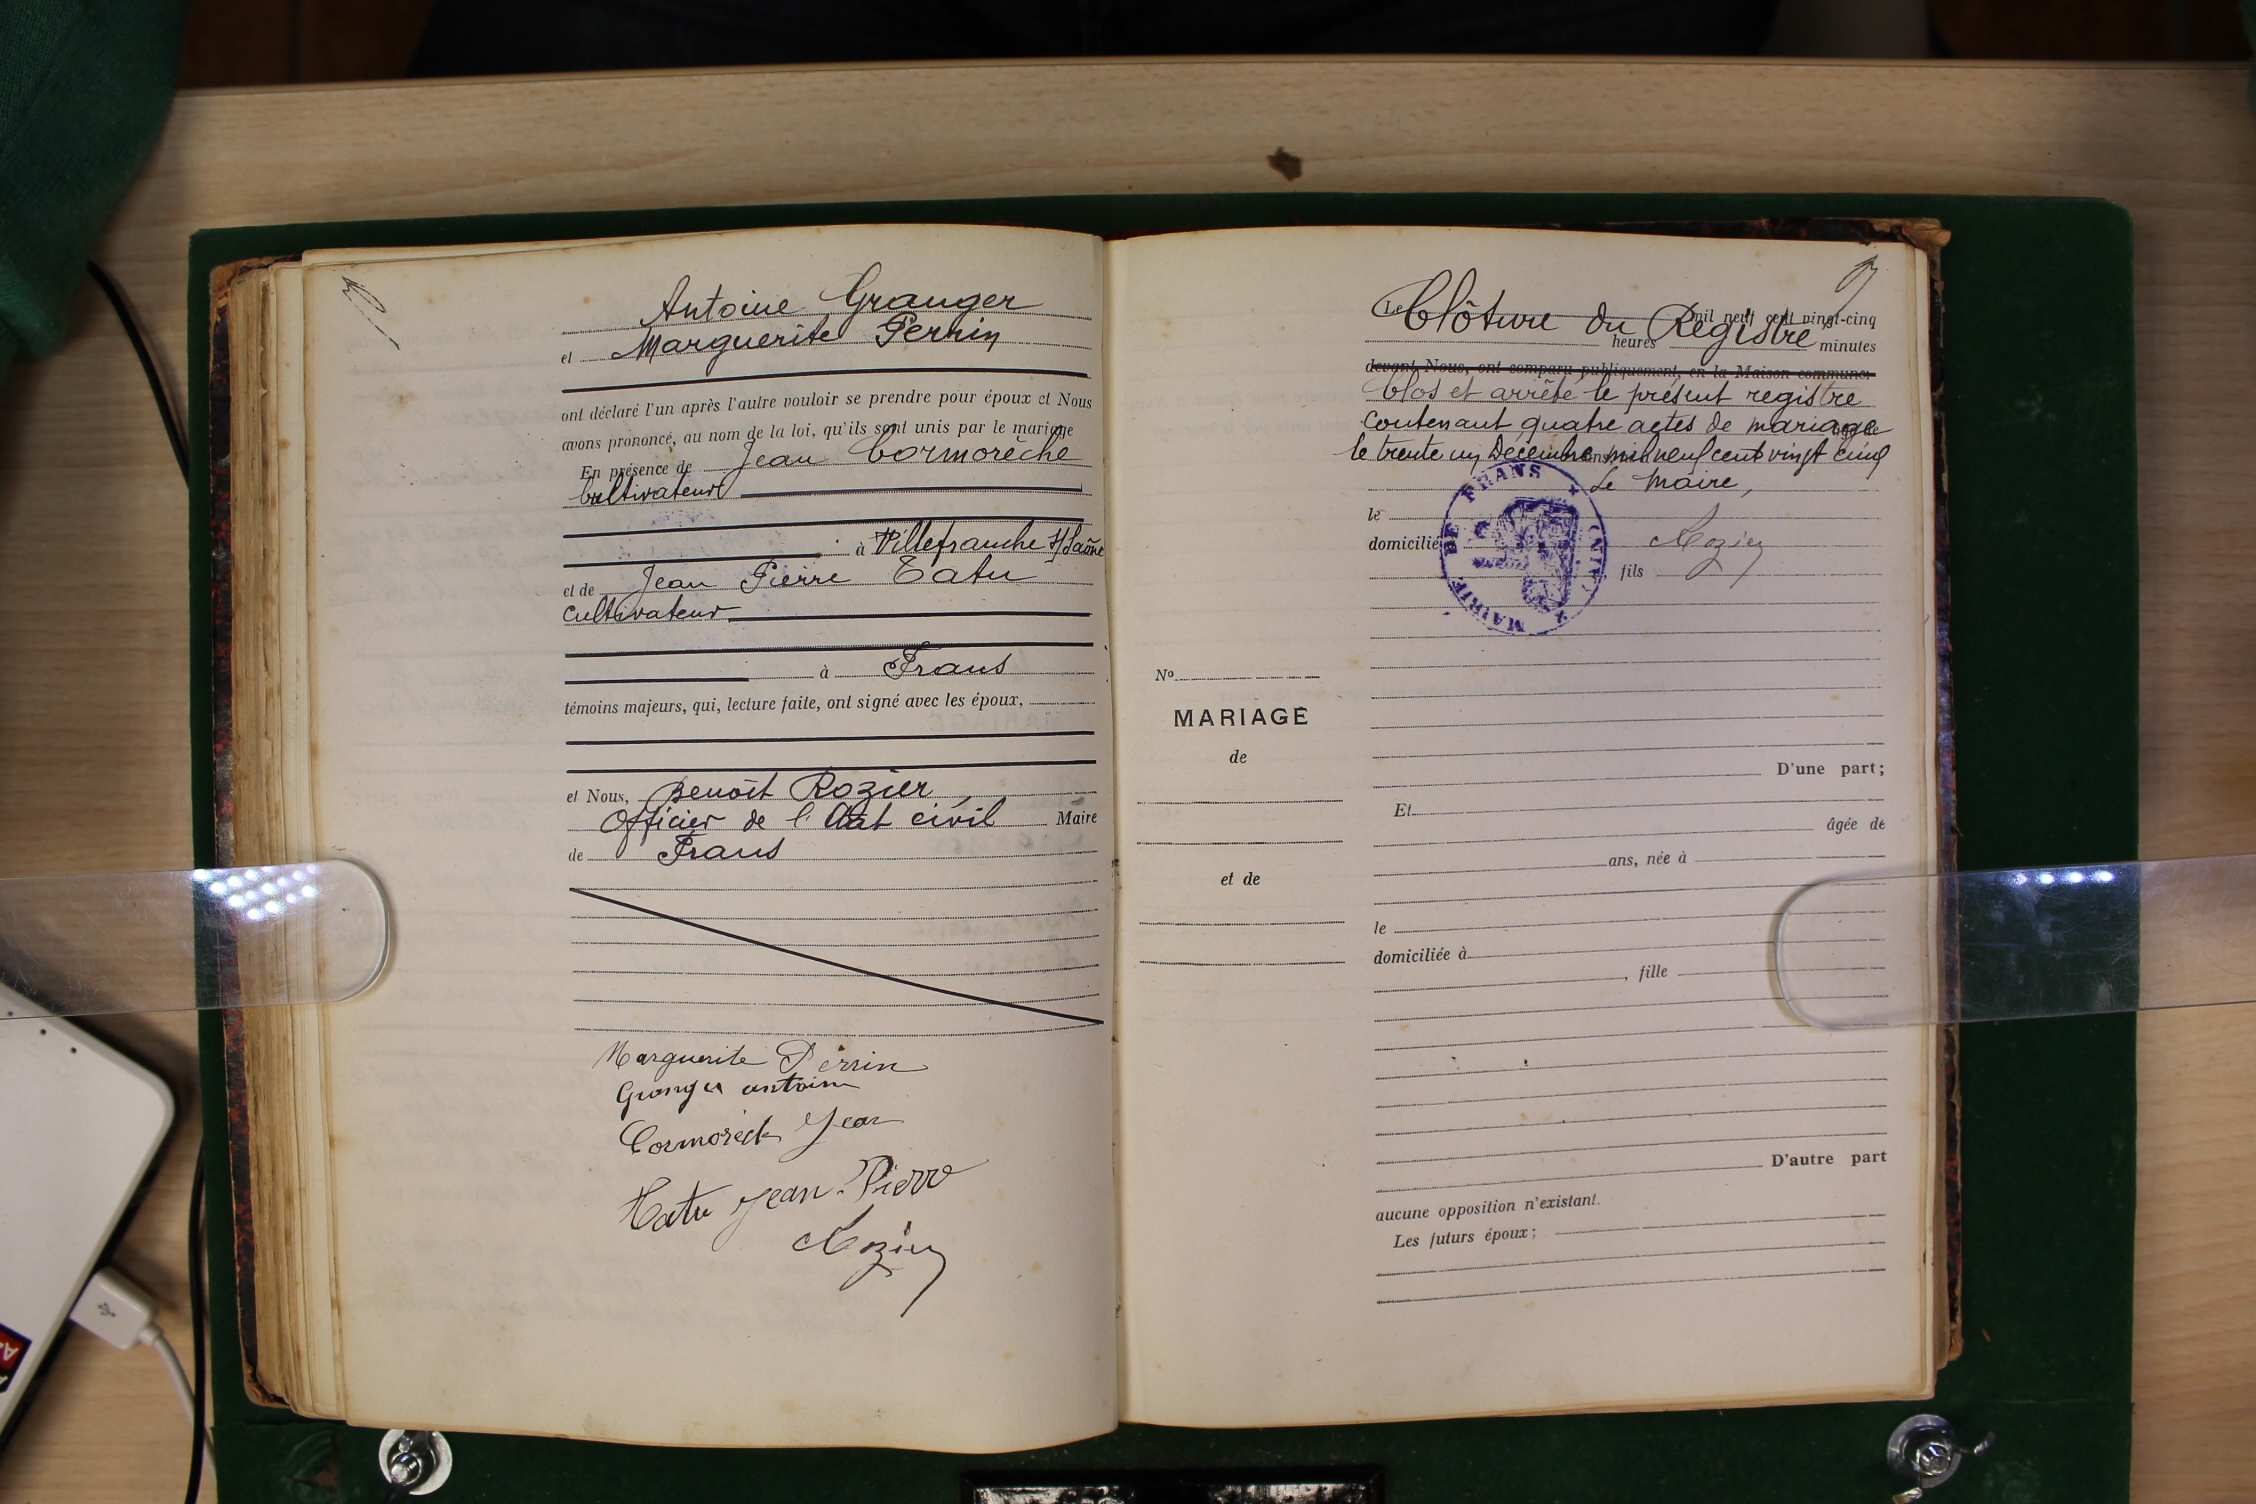 Antoine Granger
et Marguerite Perrin
ont déclaré l'un après l'autre vouloir se prendre pour époux et Nous
avons prononcé, au nom de la loi, qu'ils sont unis par le mariage
En présence de Jean Cormorèche
Cultivateur
à Villefranche s/Saône
et de Jean Pierre Tatu
cultivateur
à Frans
témoins majeurs, qui, lecture faite, ont signé avec les époux,
et Nous, Benoît Rozier,
Officier de l'état civil Maire
de Frans
Marguerite Perrin
Granger antoine
Cormorèche Jean
Tatu Jean-Pierre
Rozier
Le mil neuf cent vingt-cinq
Clôture du Registre
heures minutes
devant Nous, ont comparu publiquement, en la Maison commune:
Clos et arrêté le présent registre
contenant quatre actes de mariage
le trente un Décembre mil neuf cent vingt cinq
Le Maire,
MAIRIE DE FRANS (AIN)
le
domicilié Rozier
fils
No
MARIAGE
de
et de
D'une part;
Et
âgée de
ans, née à
le
domiciliée à
, fille
D'autre part
aucune opposition n'existant.
Les futurs époux;